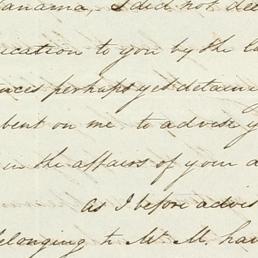 Panama, I did not dee
ucation to you by the la
nces perhaps yet detaine
bent on me to advise y
in the affairs of your a
As I before advis
Belonging to Mr. M, hav